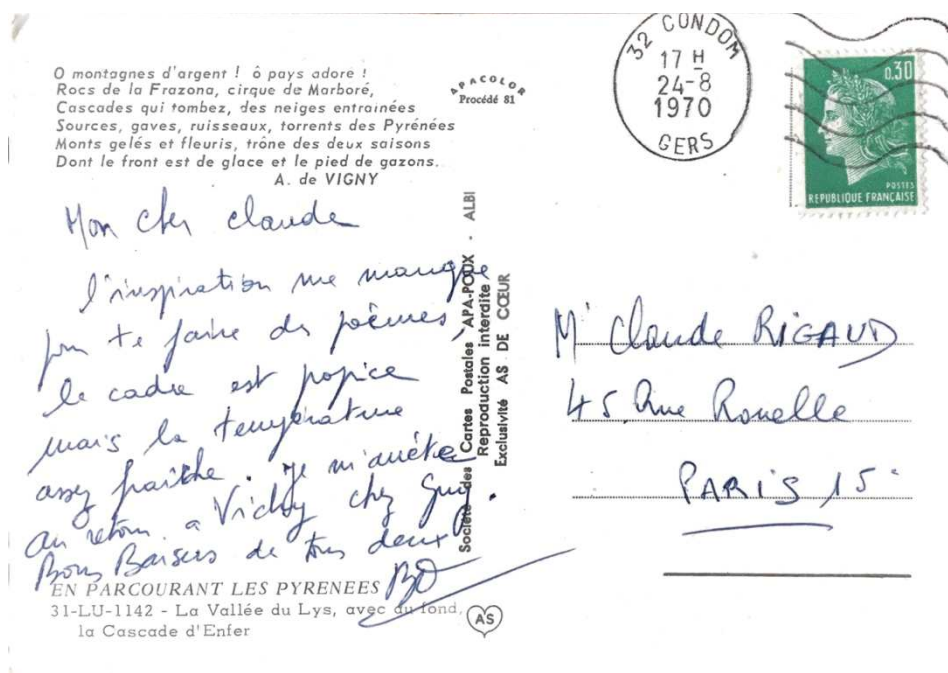 O montagnes d'argent ! ô pays adore !
Rocs de la Frazona, cirque de Marboré,
Cascades qui tombez, des neiges entrainées
Sources, gaves, ruisseaux, torrents des Pyrénées
Monts gelés et fleuris, trône des deux saisons
Dont le front est de glace et le pied de gazons.
A. de VIGNY
APACOLOR
Procédé 81
32 CONDOM
17 H
24-8
1970
GERS
0,30
POSTES
REPUBLIQUE FRANÇAISE
Mon cher Claude
l'inspiration me manque
pour te faire des poèmes,
le cadre est propice
mais la température
assez fraîche. Je m'arrête
au retour a Vichy chez Guy.
Bons Baisers de tous deux
Société des Cartes Postales APA-POUX - ALBI
Reproduction interdite
Exclusivité AS DE CŒUR
Mr Claude RIGAUD
45 Rue Rouelle
PARIS 15e
EN PARCOURANT LES PYRENEES
31-LU-1142 - La Vallée du Lys, avec au fond,
la Cascade d'Enfer
AS